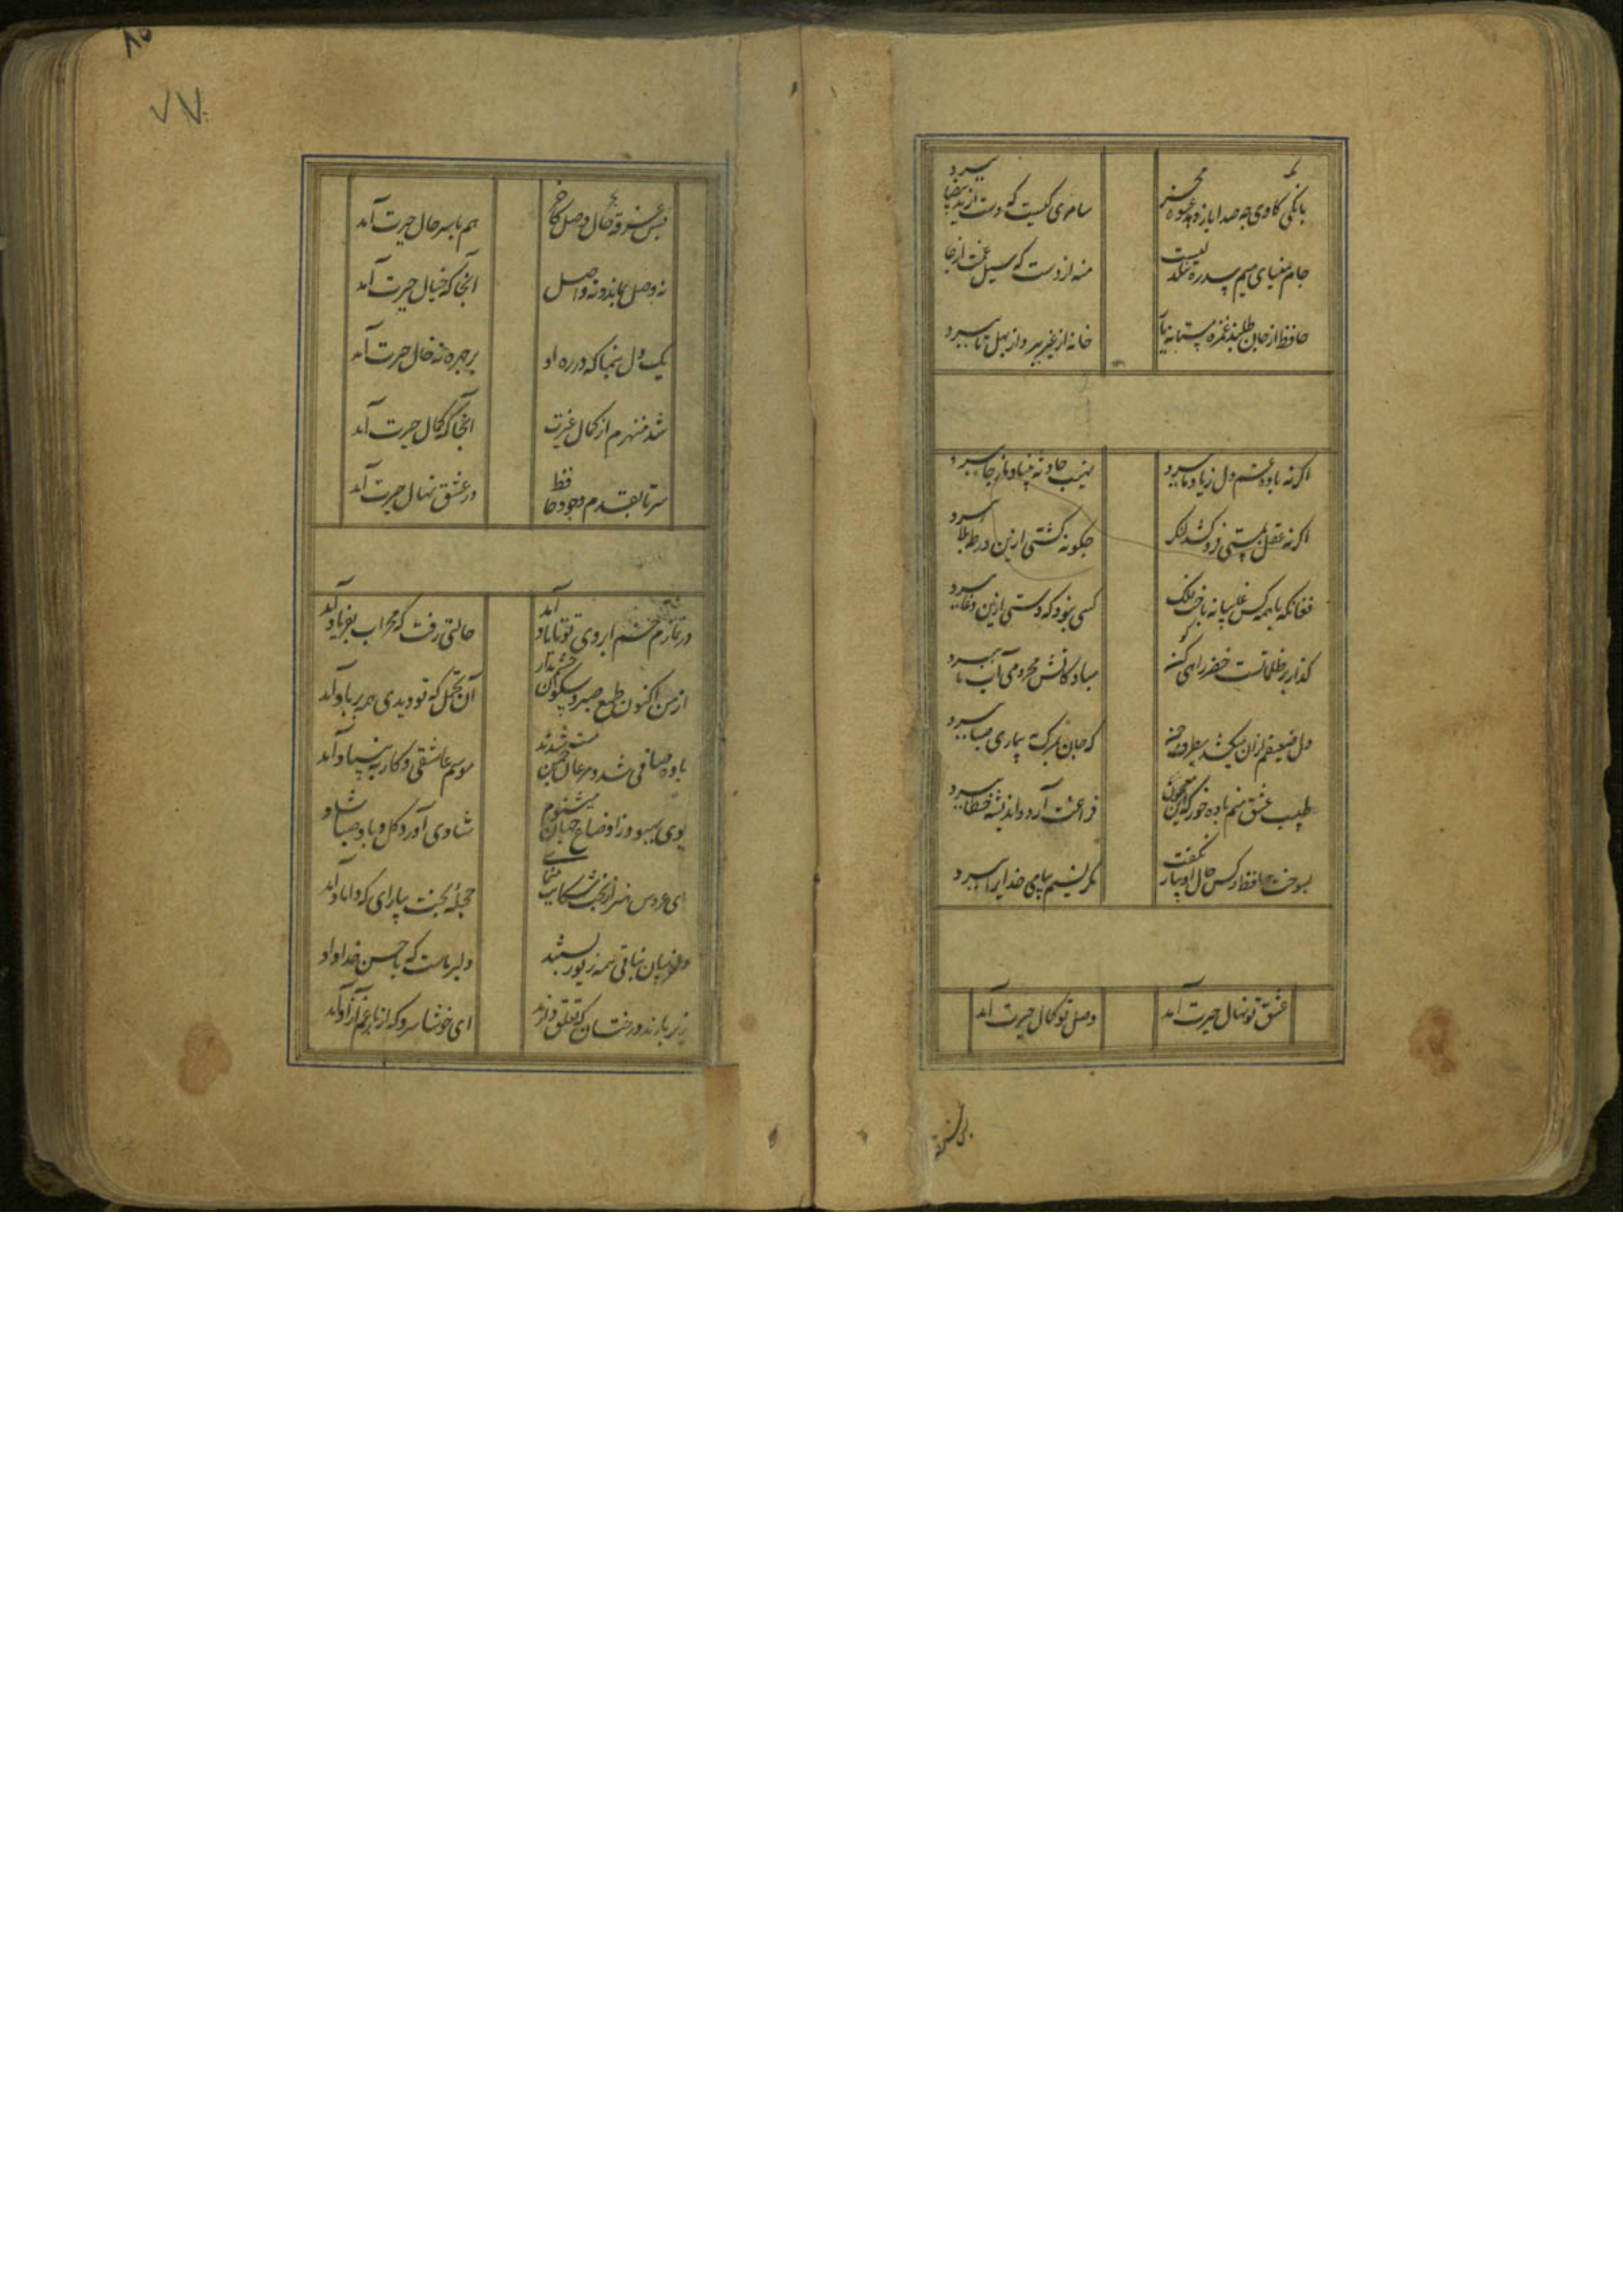 بانگی کاوی چه صدا باز دهد عشوه مخر
سامری کیست که دست از ید بیضا ببرد
جام مینای می سد ره تنگ دلیست
منه از دست که سیل غمت از جا ببرد
حافظ ار جان طلبد غمزه مستانه یار
خانه از غیر بپرداز و بهل تا ببرد
اگر نه باده غم دل ز یاد ما ببرد
نهیب حادثه بنیاد ما ز جا ببرد
اگر نه عقل بمستی فرو کشد لنگر
چگونه کشتی ازین ورطه بلا ببرد
فغانکه با همه کس غایبانه باخت فلک
کسی نبود که دستی ازین دغا ببرد
گذار بر ظلماتست خضر راهی کو
مباد کاتش محرومی آب ما ببرد
دل ضعیفم از آن میکشد بطرف چمن
که جان ز مرگ به بیماری صبا ببرد
طبیب عشق منم باده خور که این معجون
فراغت آرد و اندیشه خطا ببرد
بسوخت حافظ و کس حال او بیار نگفت
مگر نسیم پیامی خدایرا ببرد
عشق تو نهال حیرت آمد
وصل تو کمال حیرت آمد
بس غرقه
۷۷
بس غرقه حال وصل کاخر
هم با سر حال حیرت آمد
نه وصل بماند و نه واصل
آنجا که خیال حیرت آمد
یک دل بنما که در ره او
بر چهره نه خال حیرت آمد
شد منهزم از کمال عزت
آنجا که کمال حیرت آمد
سر تا بقدم وجود حافظ
در عشق نهال حیرت آمد
در نمازم خم ابروی تو با یاد آمد
حالتی رفت که محراب بفریاد آمد
از من اکنون طمع صبر و سکون چشم مدار
آن تحمل که تو دیدی همه بر باد آمد
باده صافی شد و مرغان چمن مست شدند
موسم عاشقی و کار به بنیاد آمد
بوی بهبود ز اوضاع جهان میشنوم
شادی آورد گل و باد صبا شاد
ای عروس هنر از بخت شکایت منمای
حجله بخت بیارای که داماد آمد
دلفریبان نباتی همه زیور بستند
دلبر ماست که با حسن خداداد
زیر بارند درختان که تعلق دارند
ای خوشا سرو که از بار غم آزاد آمد